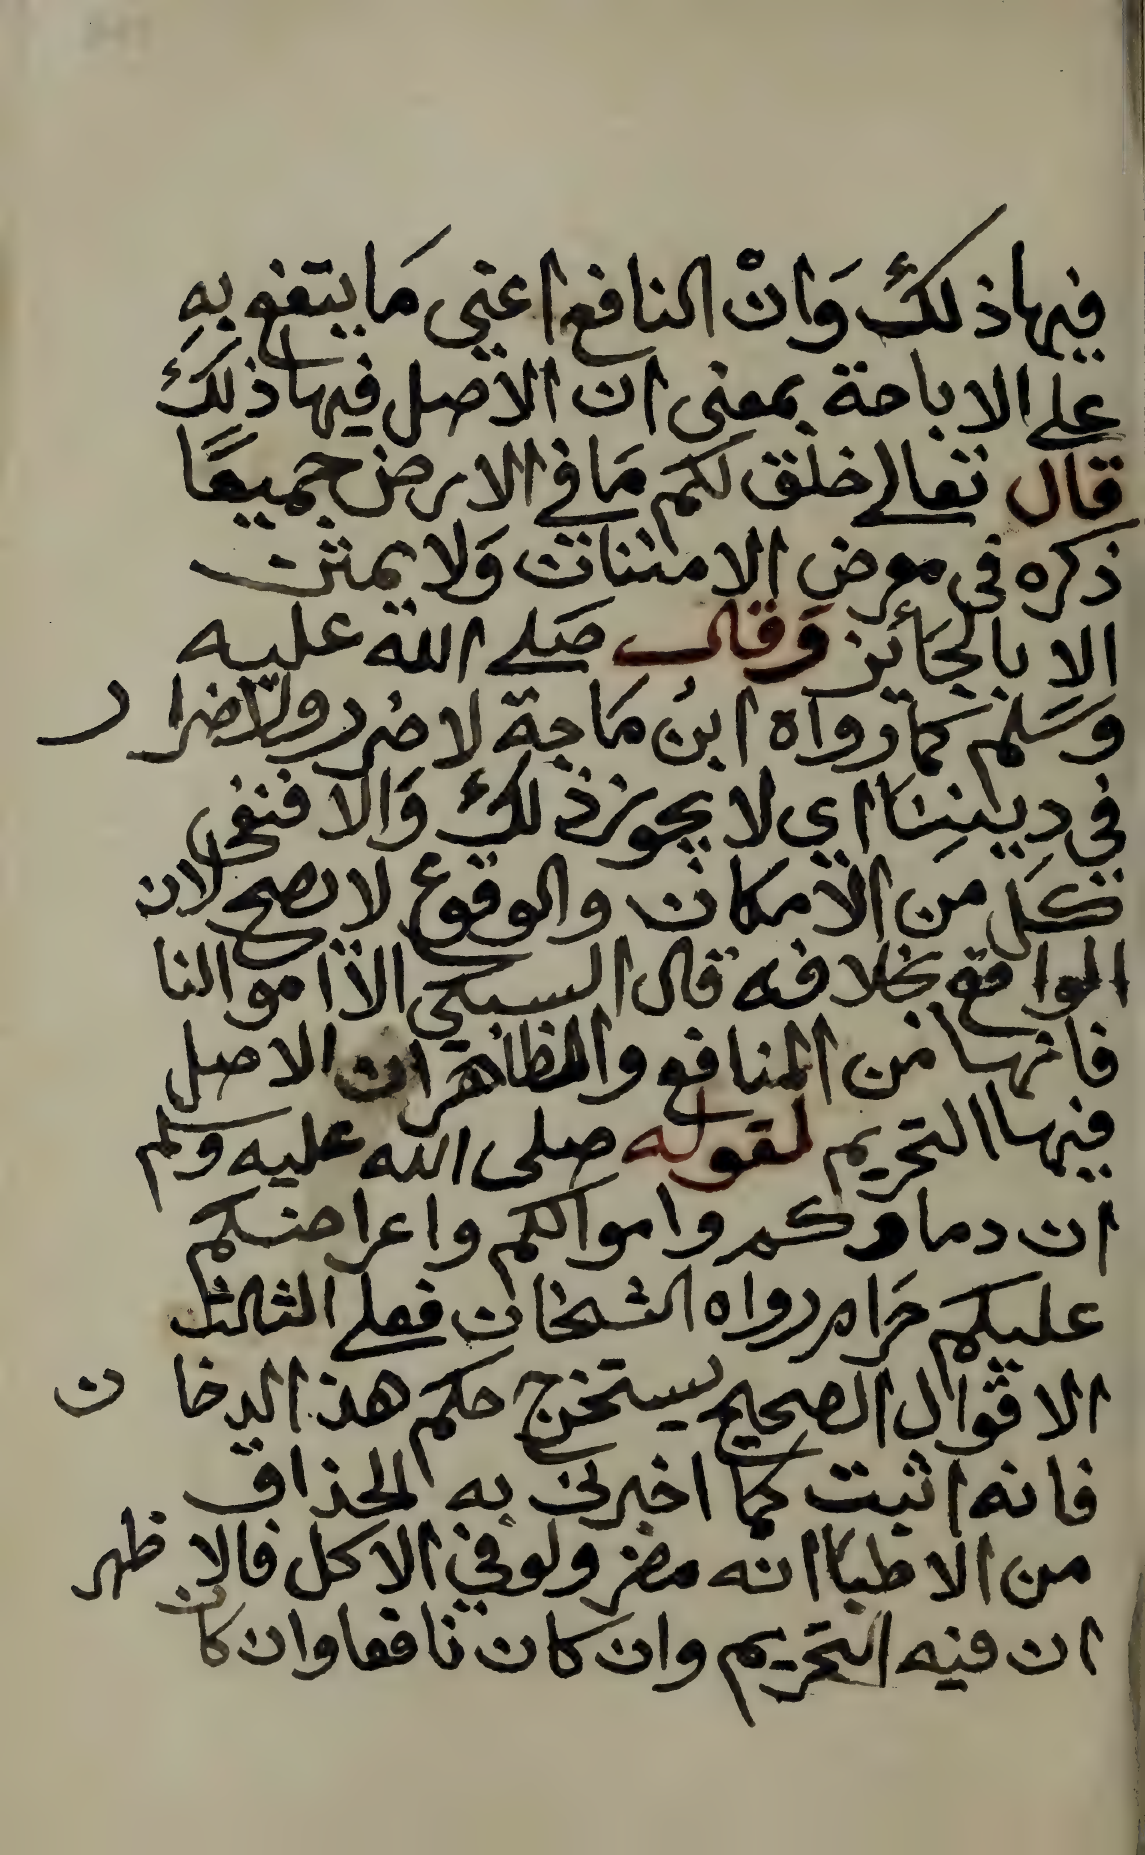 فيها ذلك وَانْ النافع اعني مَا ينتفع بهِ
علي الاباحة بمعني ان الأصل فيها ذلِكَ
قال تعالي خلق لكم مَا في الارض جميعًا
ذكره في معرض الامتنان وَلا يمتن
الا بالجَائز وَقال صَلي الله عليه
وسَلم كما رواه ابنُ مَاجة لا ضرر ولا ضرار
في ديننِنَا اي لا يجوز ذلك وَالا فنفي
كل من الامكان والوقوع لا يصح لان
الواقع بخلافه قال السبكي الا اموالنا
فانها من المنافع والظاهر ان الاصل
فيها التحريم لقوله صلى الله عليه وسلم
ان دماوكم واموالكم واعراضكم
عليكم حَرام رواه الشيخان فعلي الثالث
الاقوال الصحيح يستخرج حكم هذ الدخان
فانه اثبت كما اخبرني به الحذاق
من الاطبا انه مضر ولو في الاكل فالاظهر
ان فيه التحريم وان كان نافعا وان كان